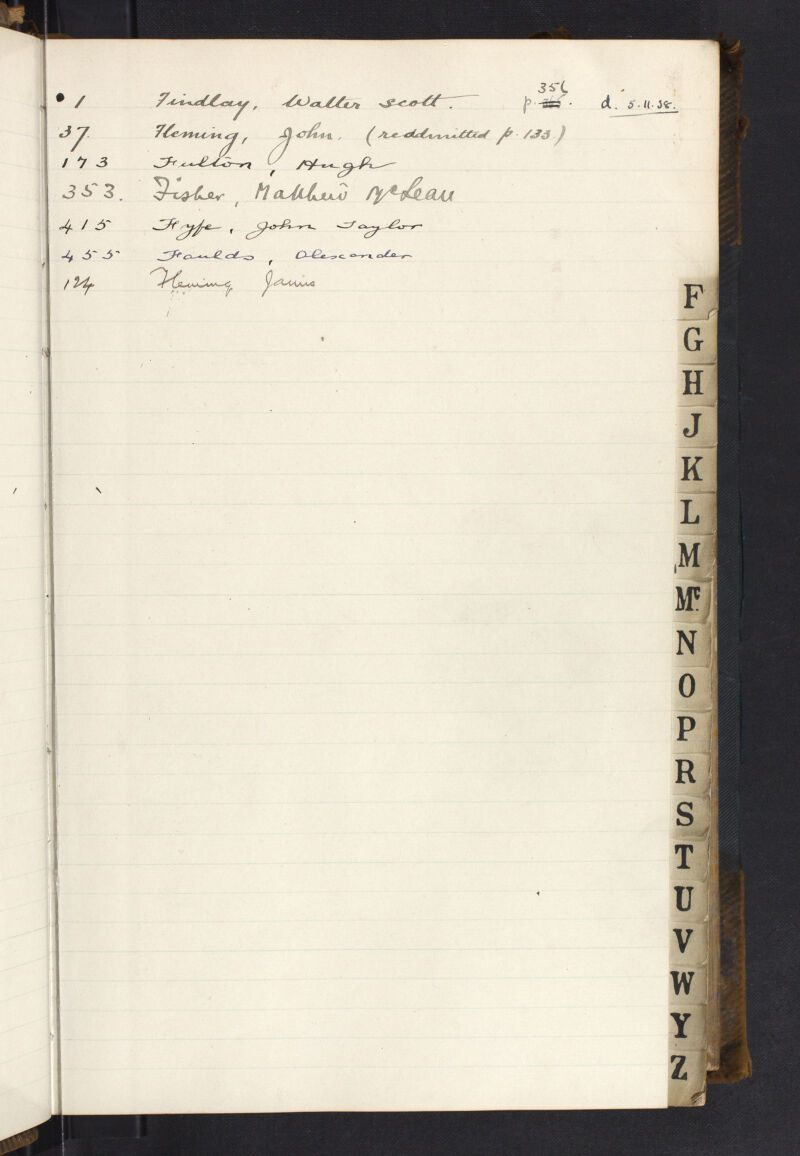 • 1 Findlay, Walter Scott. p. 356. d. 5.11.38.
37. Fleming, John. (readmitted p. 133)
173 Fulton, Hugh
353. Fisher, Matthew McLean
415 Fyfe, John Taylor
455 Faulds, Alexander
124 Fleming James
F
G
H
J
K
L
M
Mc
N
O
P
R
S
T
U
V
W
Y
Z